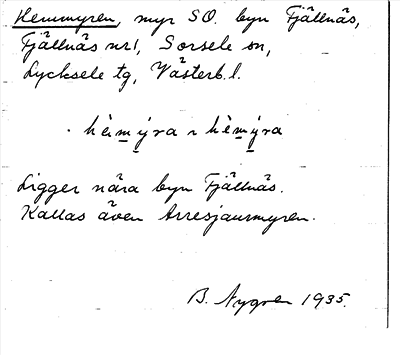 Hemmyren, myr SO. byn Fjällnäs,
Fjällnäs nr 1, Sorsele sn,
Lycksele tg, Västerb. l.
hèi̯m ýra ~ hèm ýra
Ligger nära byn Fjällnäs.
Kallas även Arresjaurmyren.
B. Nygren 1935.